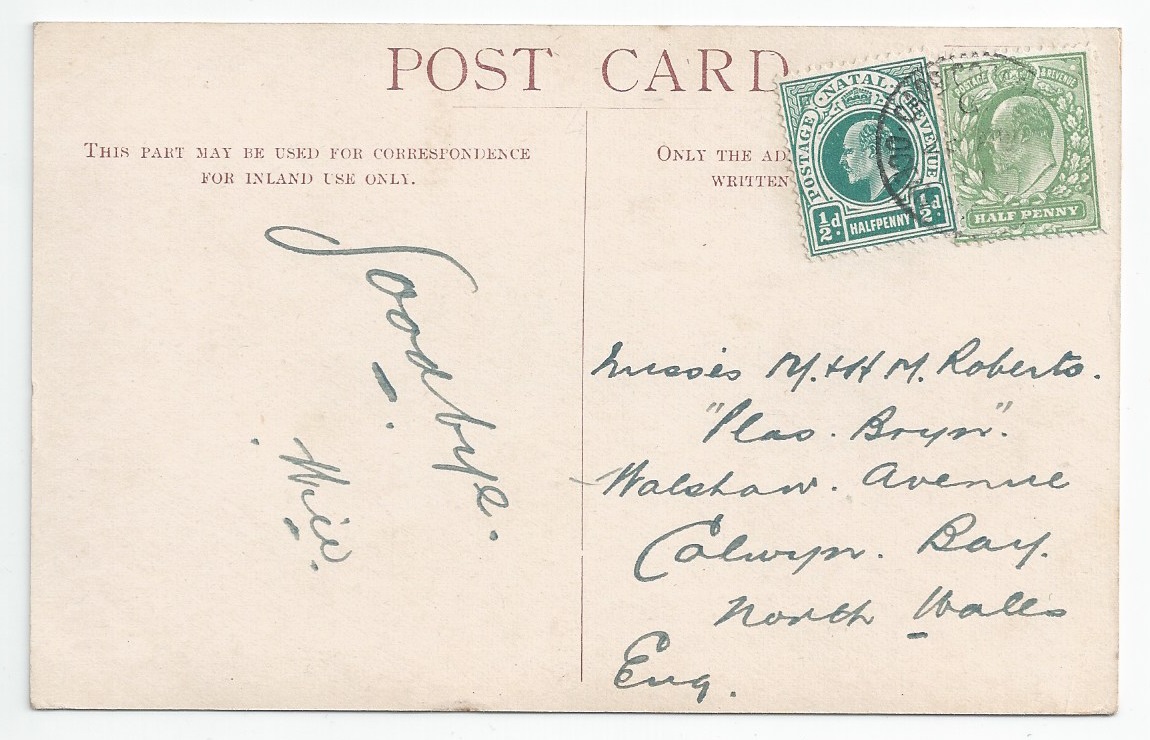 POST CARD
THIS PART MAY BE USED FOR CORRESPONDENCE
FOR INLAND USE ONLY.
ONLY THE AD
WRITTEN
NATAL
POSTAGE
REVENUE
½d.
HALFPENNY
½d.
POSTAGE
& REVENUE
HALF PENNY
Goodbye.
Will.
Misses M. & H M. Roberts.
"Plas. Bryn".
Walshaw. Avenue
Colwyn. Bay.
North Walls
Eng.